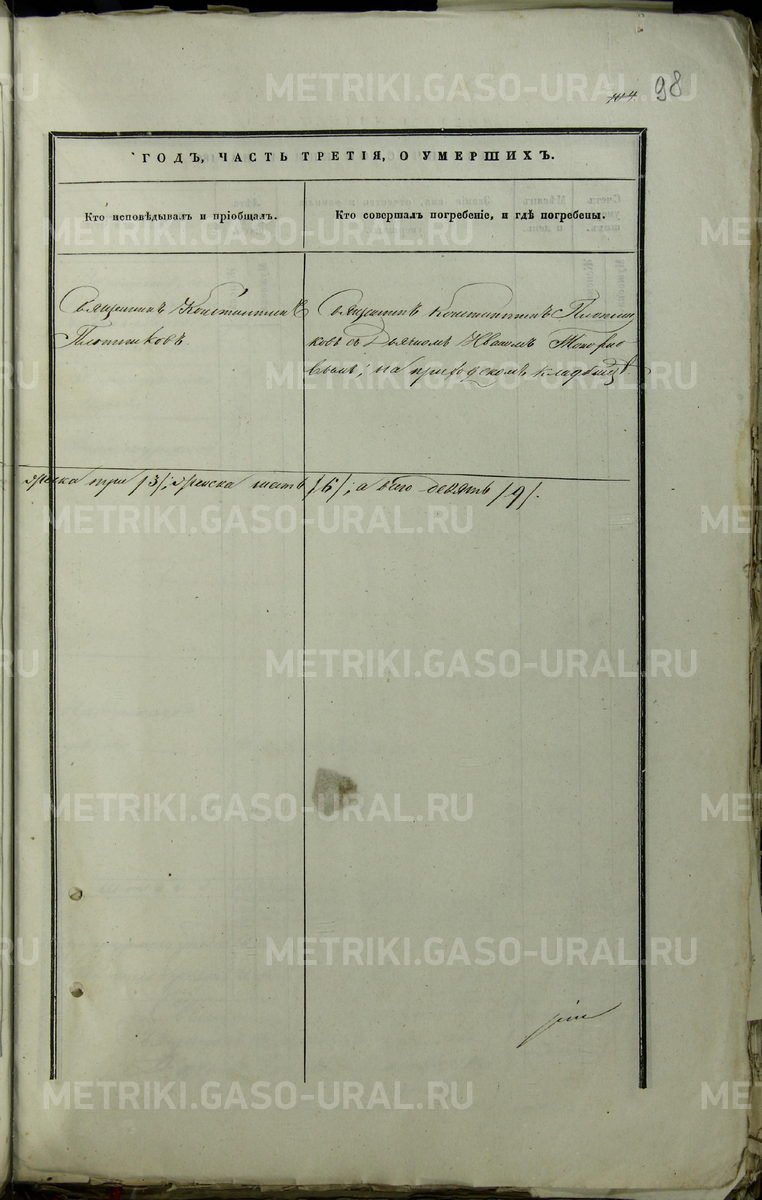 METRIKI.GASO-URAL.RU
98
ГОДЪ, ЧАСТЬ ТРЕТІЯ, О УМЕРШИХЪ.
Кто исповѣдывалъ и пріобщалъ.
Кто совершалъ погребеніе, и гдѣ погребены.
Священникъ Константинъ
Плотниковъ.
Священникъ Константинъ Плотни
ковъ съ Дьячкомъ Иваномъ
на приходскомъ кладбищѣ
мужеска три /3/, женска шесть /6/, а всего девять /9/.
METRIKI.GASO-URAL.RU
METRIKI.GASO-URAL.RU
METRIKI.GASO-URAL.RU
METRIKI.GASO-URAL.RU
METRIKI.GASO-URAL.RU
METRIKI.GASO-URAL.RU
METRIKI.GASO-URAL.RU